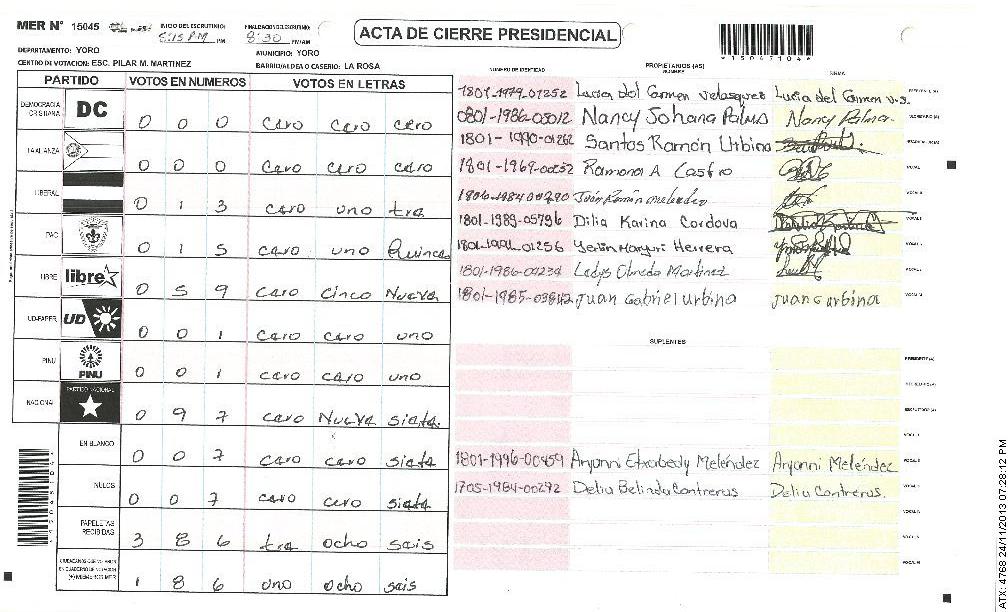 MER N° 15045
INICIO DEL ESCRUTINIO: 8:15 PM PM
FINALIZACION DEL ESCRUTINIO: 8:30 PM/AM
ACTA DE CIERRE PRESIDENCIAL
*15047104*
DEPARTAMENTO: YORO
MUNICIPIO: YORO
CENTRO DE VOTACION: ESC. PILAR M. MARTINEZ
BARRIO/ALDEA O CASERIO: LA ROSA
PARTIDO VOTOS EN NUMEROS VOTOS EN LETRAS
DEMOCRACIA CRISTIANA DC 0 0 0 cero cero cero
LA ALIANZA 0 0 0 cero cero cero
LIBERAL 0 1 3 cero uno tre
PAC 0 1 5 cero uno Quince
LIBRE libre 0 5 9 cero cinco Nueve
UD-FAPER UD 0 0 1 cero cero uno
PINU PINU 0 0 1 cero cero uno
NACIONAL PARTIDO NACIONAL 0 9 7 cero Nueve siete
EN BLANCO 0 0 7 cero cero siete
NULOS 0 0 7 cero cero siete
PAPELETAS RECIBIDAS 3 8 6 tre ocho seis
CIUDADANOS QUE VOTARON EN CUADERNO DE VOTACION (+) MIEMBROS MER 1 8 6 uno ocho seis
NUMERO DE IDENTIDAD PROPIETARIOS (AS) NOMBRE FIRMA
1801-1979-01252 Lucia del Carmen Velasquez Lucia del Carmen V.S.
0801-1986-05012 Nancy Johana Palma Nancy Palma
1801-1990-01262 Santos Ramón Urbina
1801-1969-00252 Ramona A Castro
1806-1984-00290
1801-1989-05796 Dilia Karina Cordova
1801-1994-01256 Herrera
1801-1986-00234 Ledys Olmeda Martinez
1801-1985-03842 Juan Gabriel Urbina Juan G urbina
SUPLENTES
PRESIDENTE (A)
SECRETARIO (A)
ESCRUTADOR (A)
VOCAL I
1801-1996-00459 Meléndez Aryanni Meléndez
1705-1984-00292 Delia Belinda Contreras Delia Contreras.
ATX: 4768 24/11/2013 07:28:12 PM